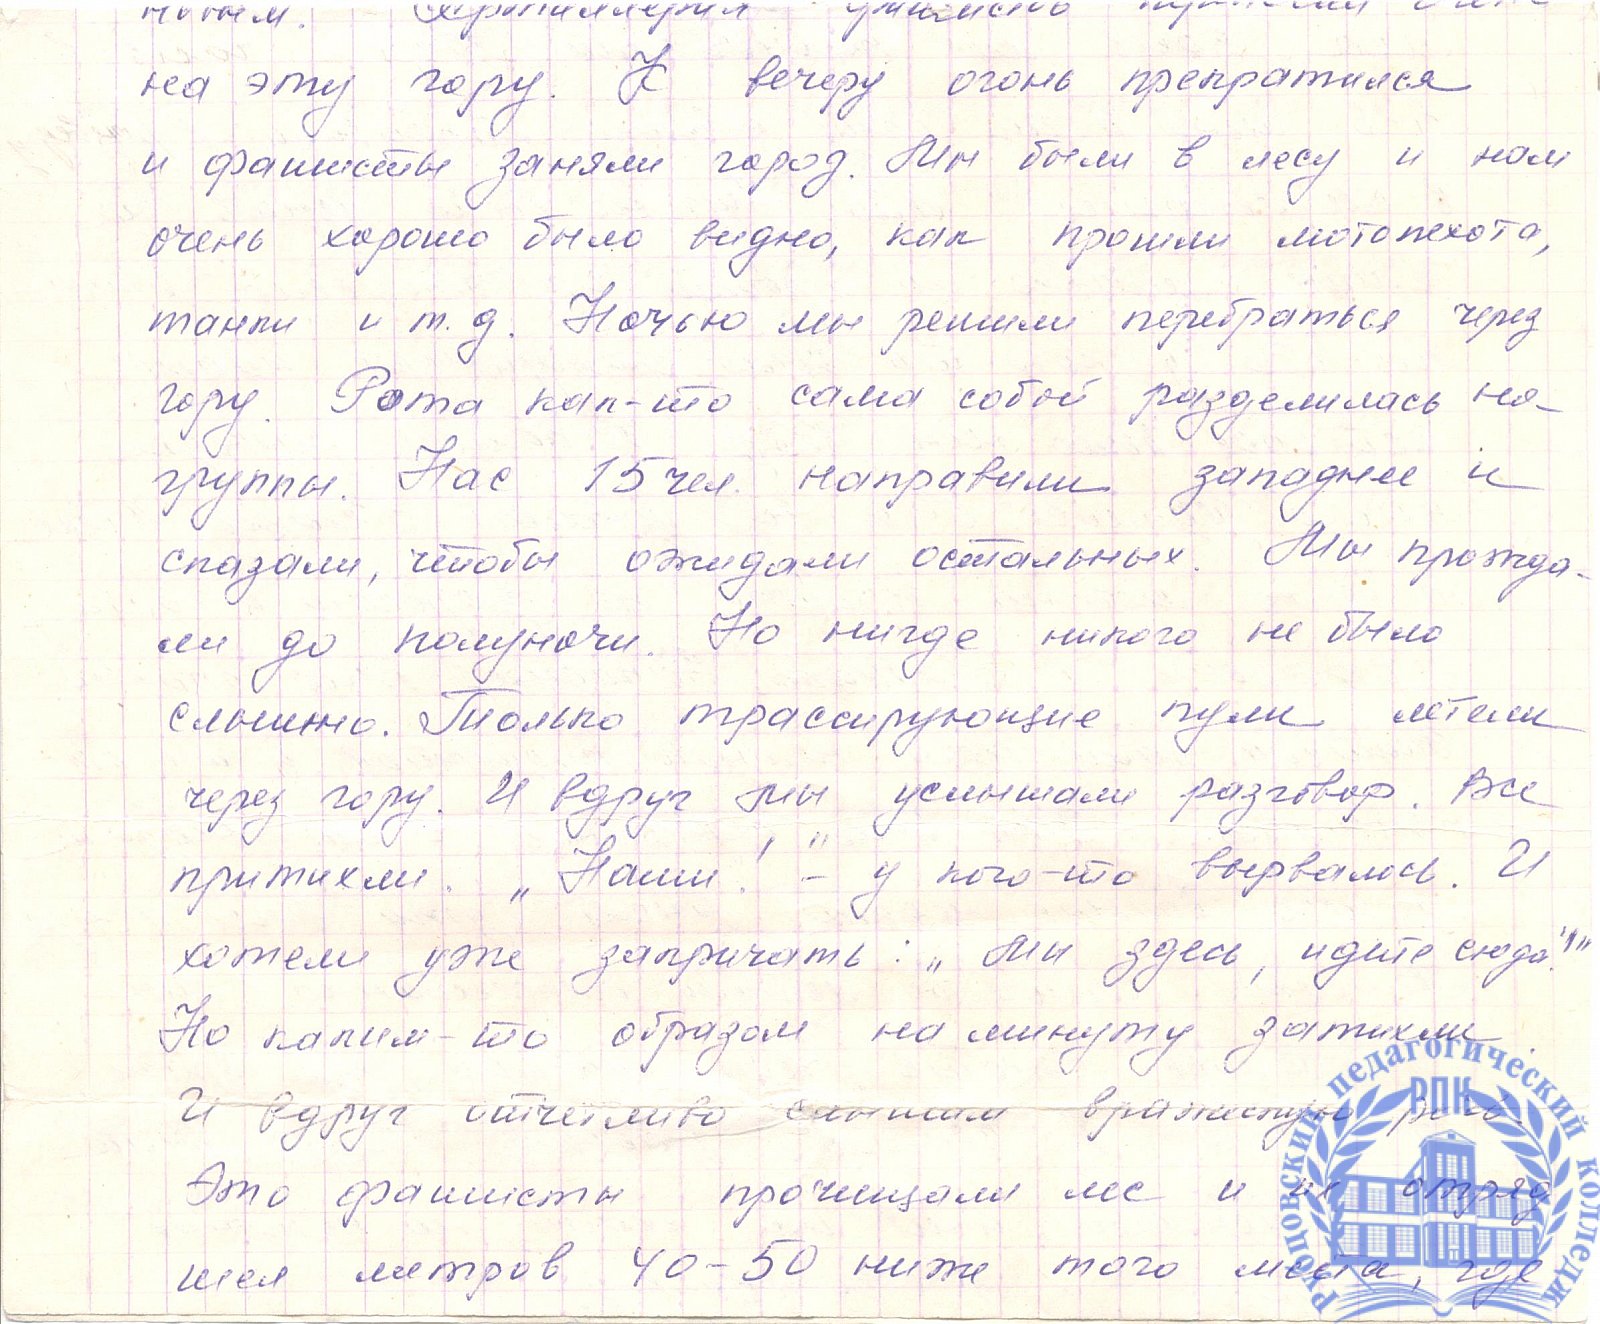 на эту гору. К вечеру огонь прекратился
и фашисты заняли город. Мы были в лесу и нам
очень хорошо было видно, как прошли мотопехота,
танки и т. д. Ночью мы решили перебраться через
гору. Рота как-то сама собой разделилась на
группы. Нас 15 чел. направили западнее и
сказали, чтобы ожидали остальных. Мы прожда-
ли до полуночи. Но нигде никого не было
слышно. Только трассирующие пули летели
через гору. И вдруг мы услышали разговор. Все
притихли. „Наши!" - у кого-то вырвалось. И
хотели уже закричать: „Мы здесь, идите сюда!"
Но каким-то образом на минуту затихли.
И вдруг отчетливо слышим вражескую речь.
Это фашисты прочищали лес и их отряд
шел метров 40-50 ниже того места, где
Рубцовский педагогический колледж
РПК